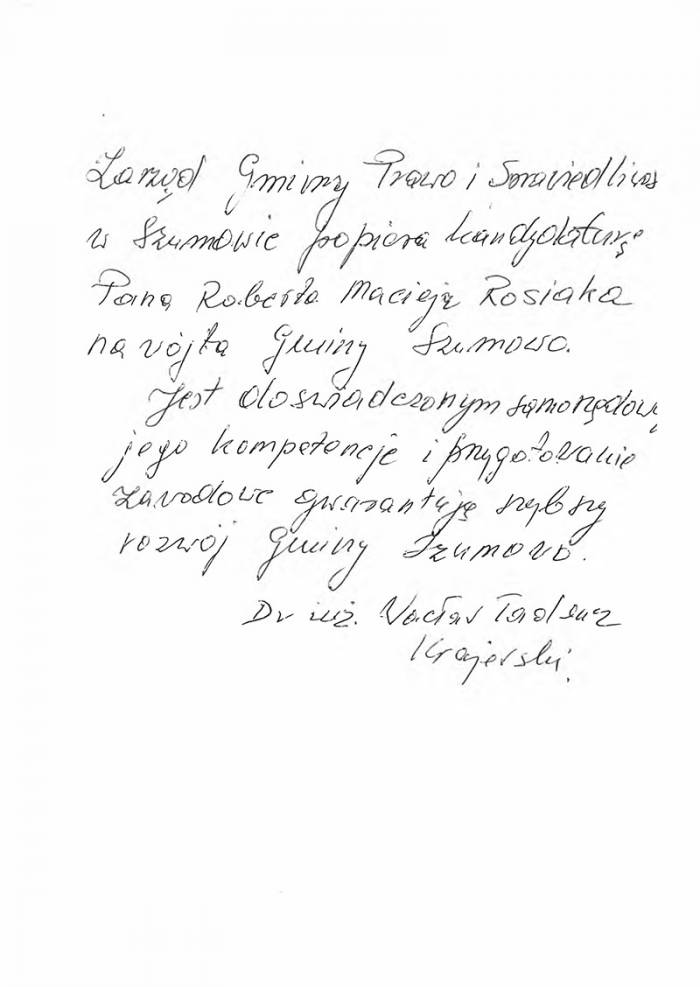 Zarząd Gminy Prawo i Sprawiedliwoś
w Szumowie popiera kandydaturę
Pana Roberta Macieja Rosiaka
na wójta Gminy Szumowo.
Jest doświadczonym samorządowc
jego kompetencje i przygotowanie
zawodowe gwarantują szybszy
rozwój Gminy Szumowo.
Dr inż. Wacław Tadeusz
Krajewski.